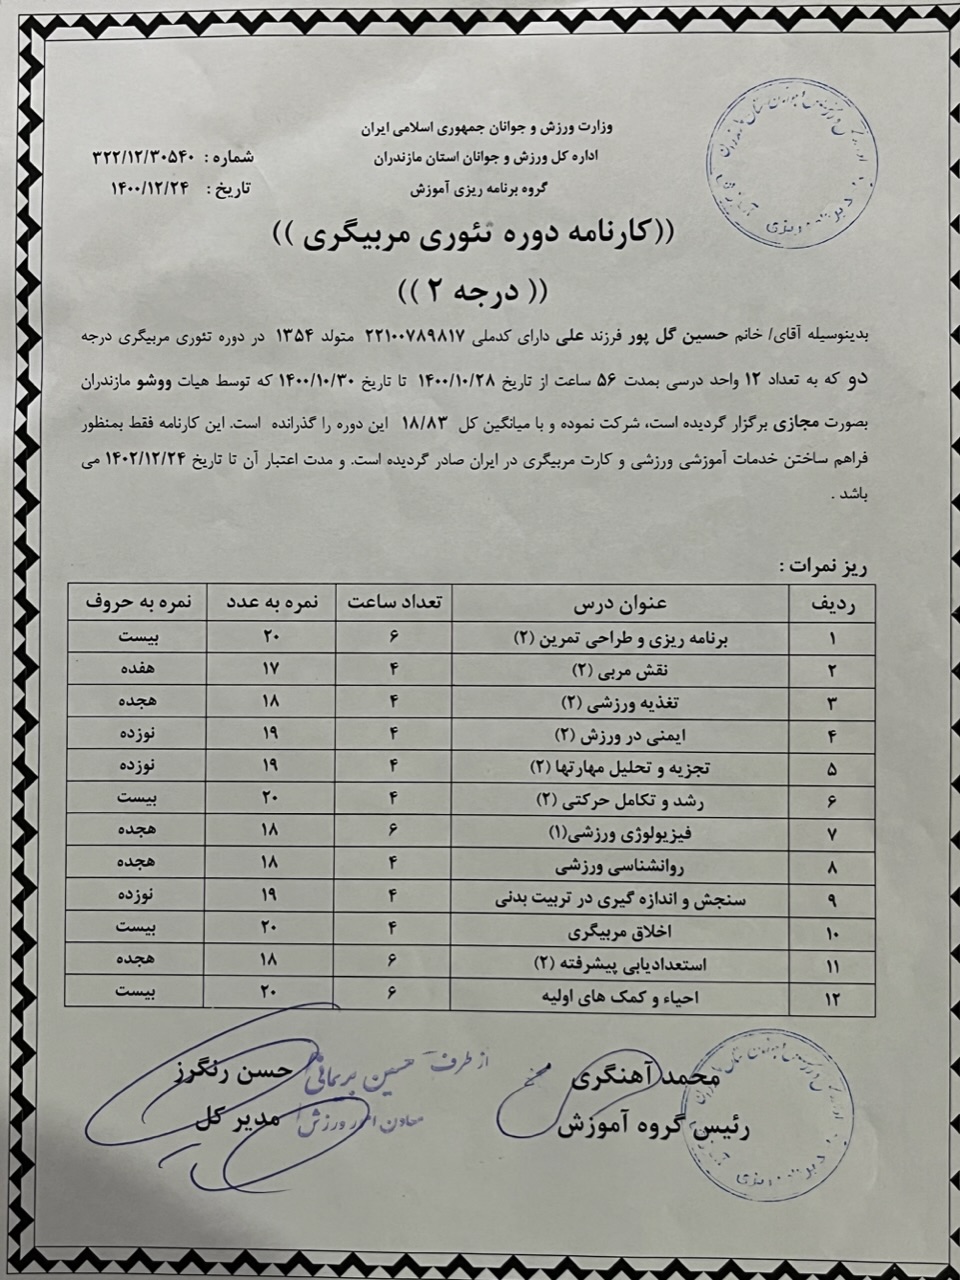 وزارت ورزش و جوانان جمهوری اسلامی ایران
اداره کل ورزش و جوانان استان مازندران
گروه برنامه ریزی آموزش
شماره : ۳۲۲/۱۲/۳۰۵۴۰
تاریخ : ۱۴۰۰/۱۲/۲۴
((کارنامه دوره تئوری مربیگری ))
(( درجه ۲ ))
بدینوسیله آقای/ خانم حسین گل پور فرزند علی دارای کدملی ۲۲۱۰۰۷۸۹۸۱۷ متولد ۱۳۵۴ در دوره تئوری مربیگری درجه
دو که به تعداد ۱۲ واحد درسی بمدت ۵۶ ساعت از تاریخ ۱۴۰۰/۱۰/۲۸ تا تاریخ ۱۴۰۰/۱۰/۳۰ که توسط هیات ووشو مازندران
بصورت مجازی برگزار گردیده است، شرکت نموده و با میانگین کل ۱۸/۸۳ این دوره را گذرانده است. این کارنامه فقط بمنظور
فراهم ساختن خدمات آموزشی ورزشی و کارت مربیگری در ایران صادر گردیده است. و مدت اعتبار آن تا تاریخ ۱۴۰۲/۱۲/۲۴ می
باشد .
ریز نمرات :
ردیف عنوان درس تعداد ساعت نمره به عدد نمره به حروف
۱ برنامه ریزی و طراحی تمرین (۲) ۶ ۲۰ بیست
۲ نقش مربی (۲) ۴ ۱۷ هفده
۳ تغذیه ورزشی (۲) ۴ ۱۸ هجده
۴ ایمنی در ورزش (۲) ۴ ۱۹ نوزده
۵ تجزیه و تحلیل مهارتها (۲) ۴ ۱۹ نوزده
۶ رشد و تکامل حرکتی (۲) ۴ ۲۰ بیست
۷ فیزیولوژی ورزشی(۱) ۶ ۱۸ هجده
۸ روانشناسی ورزشی ۴ ۱۸ هجده
۹ سنجش و اندازه گیری در تربیت بدنی ۴ ۱۹ نوزده
۱۰ اخلاق مربیگری ۴ ۲۰ بیست
۱۱ استعدادیابی پیشرفته (۲) ۶ ۱۸ هجده
۱۲ احیاء و کمک های اولیه ۶ ۲۰ بیست
محمد آهنگری
رئیس گروه آموزش
از طرف حسین بریمانی
معاون امور ورزش
حسن رنگرز
مدیر کل